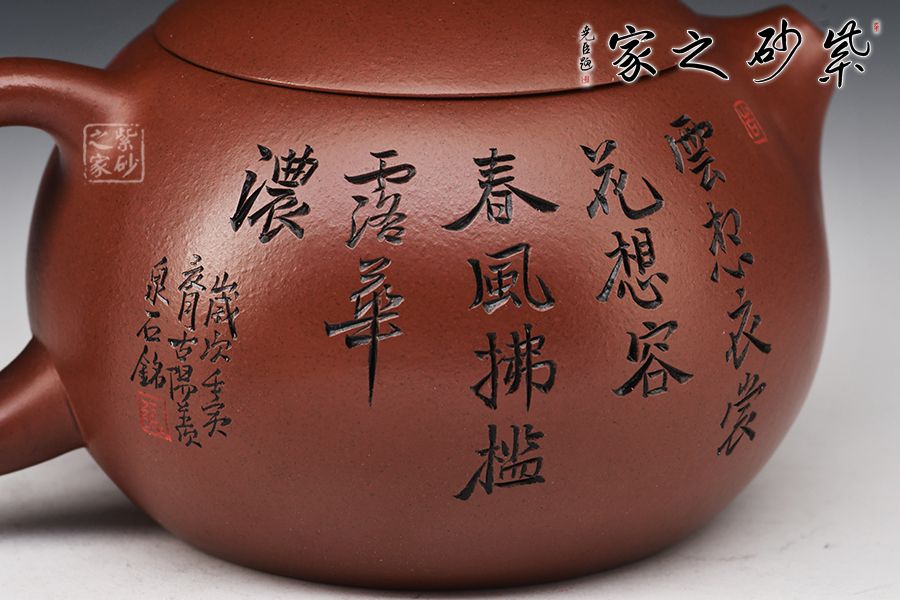 紫砂之家
堯臣題
紫砂
之家
雲想衣裳
花想容
春風拂檻
露華
濃
歲次壬寅
夜月古陽羨
泉石銘